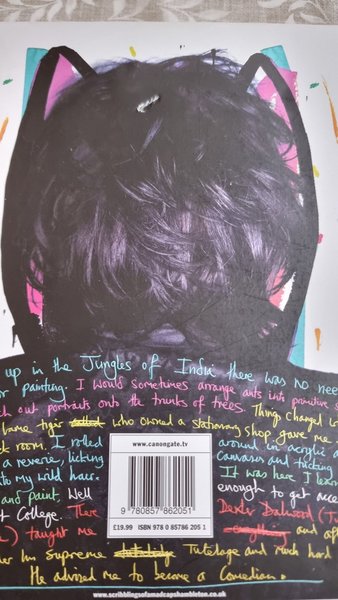 up in the Jungles of India there was no nee
r painting. I would sometimes arrange ants into primitive s
ch out portraits onto the trunks of trees. Things changed w
lame tiger who owned a stationary shop gave me
ck room. I rolled around in acrylic a
a reverie, licking canvases and tucking
to my wild hair. It was here I learn
and paint. Well enough to get acce
t College. There Dexter Dalwood (Tu
) taught me and aft
er his Supreme Tutelage and much hard
He advised me to become a Comedian.
www.canongate.tv
9 780857 862051
£19.99 ISBN 978 0 85786 205 1
www.scribblingsofamadcapshambleton.co.uk